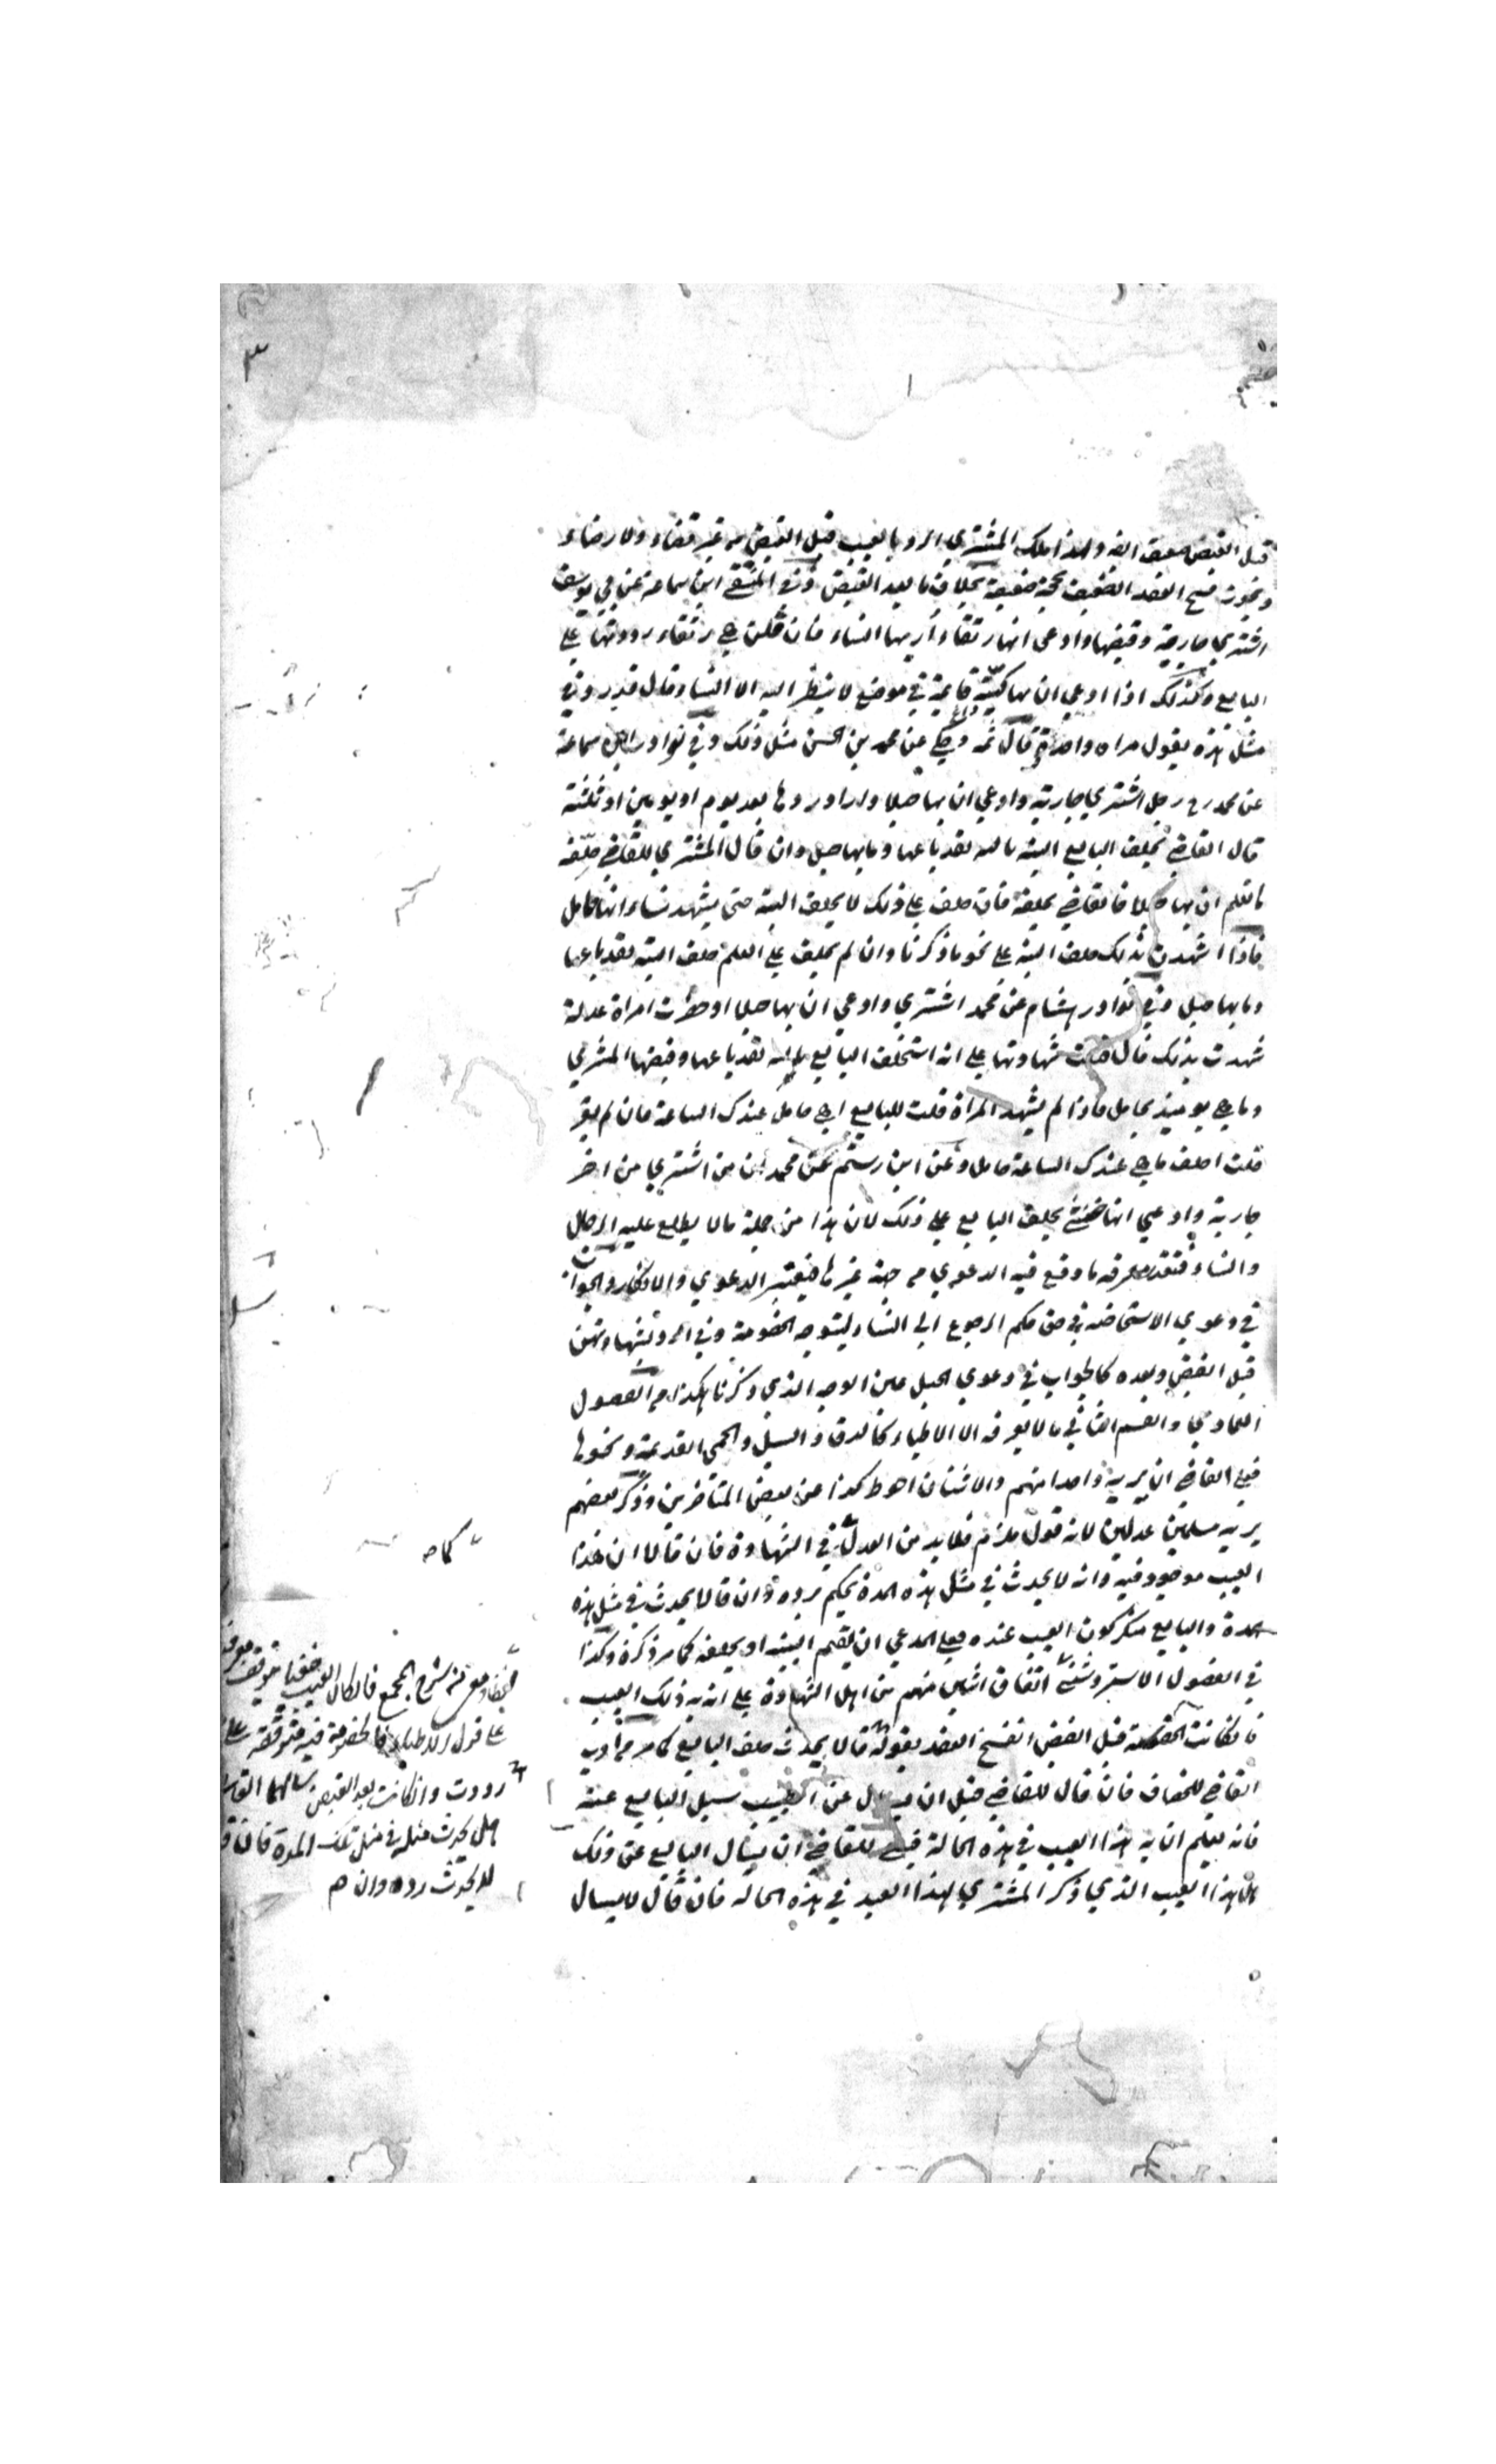 ٣
قبل القبض ضعيف الفه ولهذا يملك المشتري الرد بالعيب قبل القبض من غير قضاء ولا رضاء
ويجوز فسخ العقد الضعيف بحجة ضعيفة بخلاف ما بعد القبض وفي المنتقى ابن سماعة عن ابي يوسف
اشترى جارية وقبضها وادعى انها رتقاء اريها النساء فان قلن هي رتقاء رددتها على
البايع وكذلك اذا ادعى ان بها كية قايمة في موضع لا ينظر اليه الا النساء وقال قدير وفي
مثل هذه بقول مراه واحدة قال ثمه وحكي عن محمد بن الحسن مثل ذلك وفي نوادر ابن سماعة
عن محمد رح رجل اشترى جارية وادعى ان بها حبلا واراد ردها بعد يوم او يومين او ثلثة
قال القاضي يحلف البايع البتة بالله لقد باعها وما بها حبل وان قال المشتري للقاضي حلفه
ما تعلم ان بها حبلا فالقاضي يحلفه فان حلف على ذلك لا يحلف البتة حتى يشهد نساء انها حامل
فاذا شهدن بذلك حلف البتة على نحو ما ذكرنا وان لم يحلف على العلم حلف البتة لقد باعها
وما بها حبل وفي نوادر هشام عن محمد اشترى وادعى ان بها حبلا احضرت امراة عدلة
شهدت بذلك قال قبلت شهادتها على انه استحلف البايع بالله لقد باعها وقبضها المشتري
وما هي يوميذ بحامل فاذا لم يشهد المراة قلت للبايع اهي حامل عندك الساعة فان لم يقر
قلت احلف ما هي عندك الساعة حامل وعن ابن رستم عن محمد ان من اشترى من اخر
جارية وادعى انها خنثى يحلف البايع على ذلك لان هذا من جملة ما لا يطلع عليه الرجال
والنساء فتعذر معرفه ما وقع فيه الدعوي من جهة غيرها فيعتبر الدعوي والانكار والجواب
في دعوي الاستحاضه في حق حكم الرجوع الى النساء ليتوجه الخصومة وفي الرد بشهادتهن
قبل القبض وبعده كالجواب في دعوي الحبل على الوجه الذي ذكرنا هكذا من الفصول
العمادي والقسم الثاني ما لا يعرفه الا الاطباء كالدق والسل والحمى القديمة ونحوها
فعلى القاضي ان يريه واحدا منهم والاثنان احوط كذا عن بعض المتاخرين وذكر بعضهم
يريه مسلمين عدلين لانه قول ملزم فلا بد من العدل في الشهادة فان قالا ان هذا
العيب موجود فيه وانه لا يحدث في مثل هذه المدة يحكم برده وان قالا يحدث في مثل هذه
المدة والبايع منكر كون العيب عنده فعلى المدعي ان يقيم البينة او يحلفه كما مر ذكره وكذا
في الفصول الاستروشني اتفاق اثنين منهم من اهل الشهادة على انه به ذلك العيب
فان كانت الخصومة قبل القبض انفسخ العقد بقوله قالا يحدث حلف البايع كما مر من ادب
القاضي للخصاف فان قال للقاضي قبل ان يسال عن الطبيب سل البايع عنه
فانه يعلم ان به هذا العيب في هذه الحالة فينبغي للقاضي ان يسال البايع عن ذلك
هل هذا العيب الذي ذكر المشتري لهذا العبد في هذه الحاله فان قال لا يسال
كما ص
من شرح المجمع فان كان العيب خفيا
على قول الاطباء فالخصومة فيه متوقفة على
رددت وان كانت بعد القبض سالهما القاضي
هل يحدث مثله في مثل تلك المدة فان قالا
لا يحدث رده وان هم